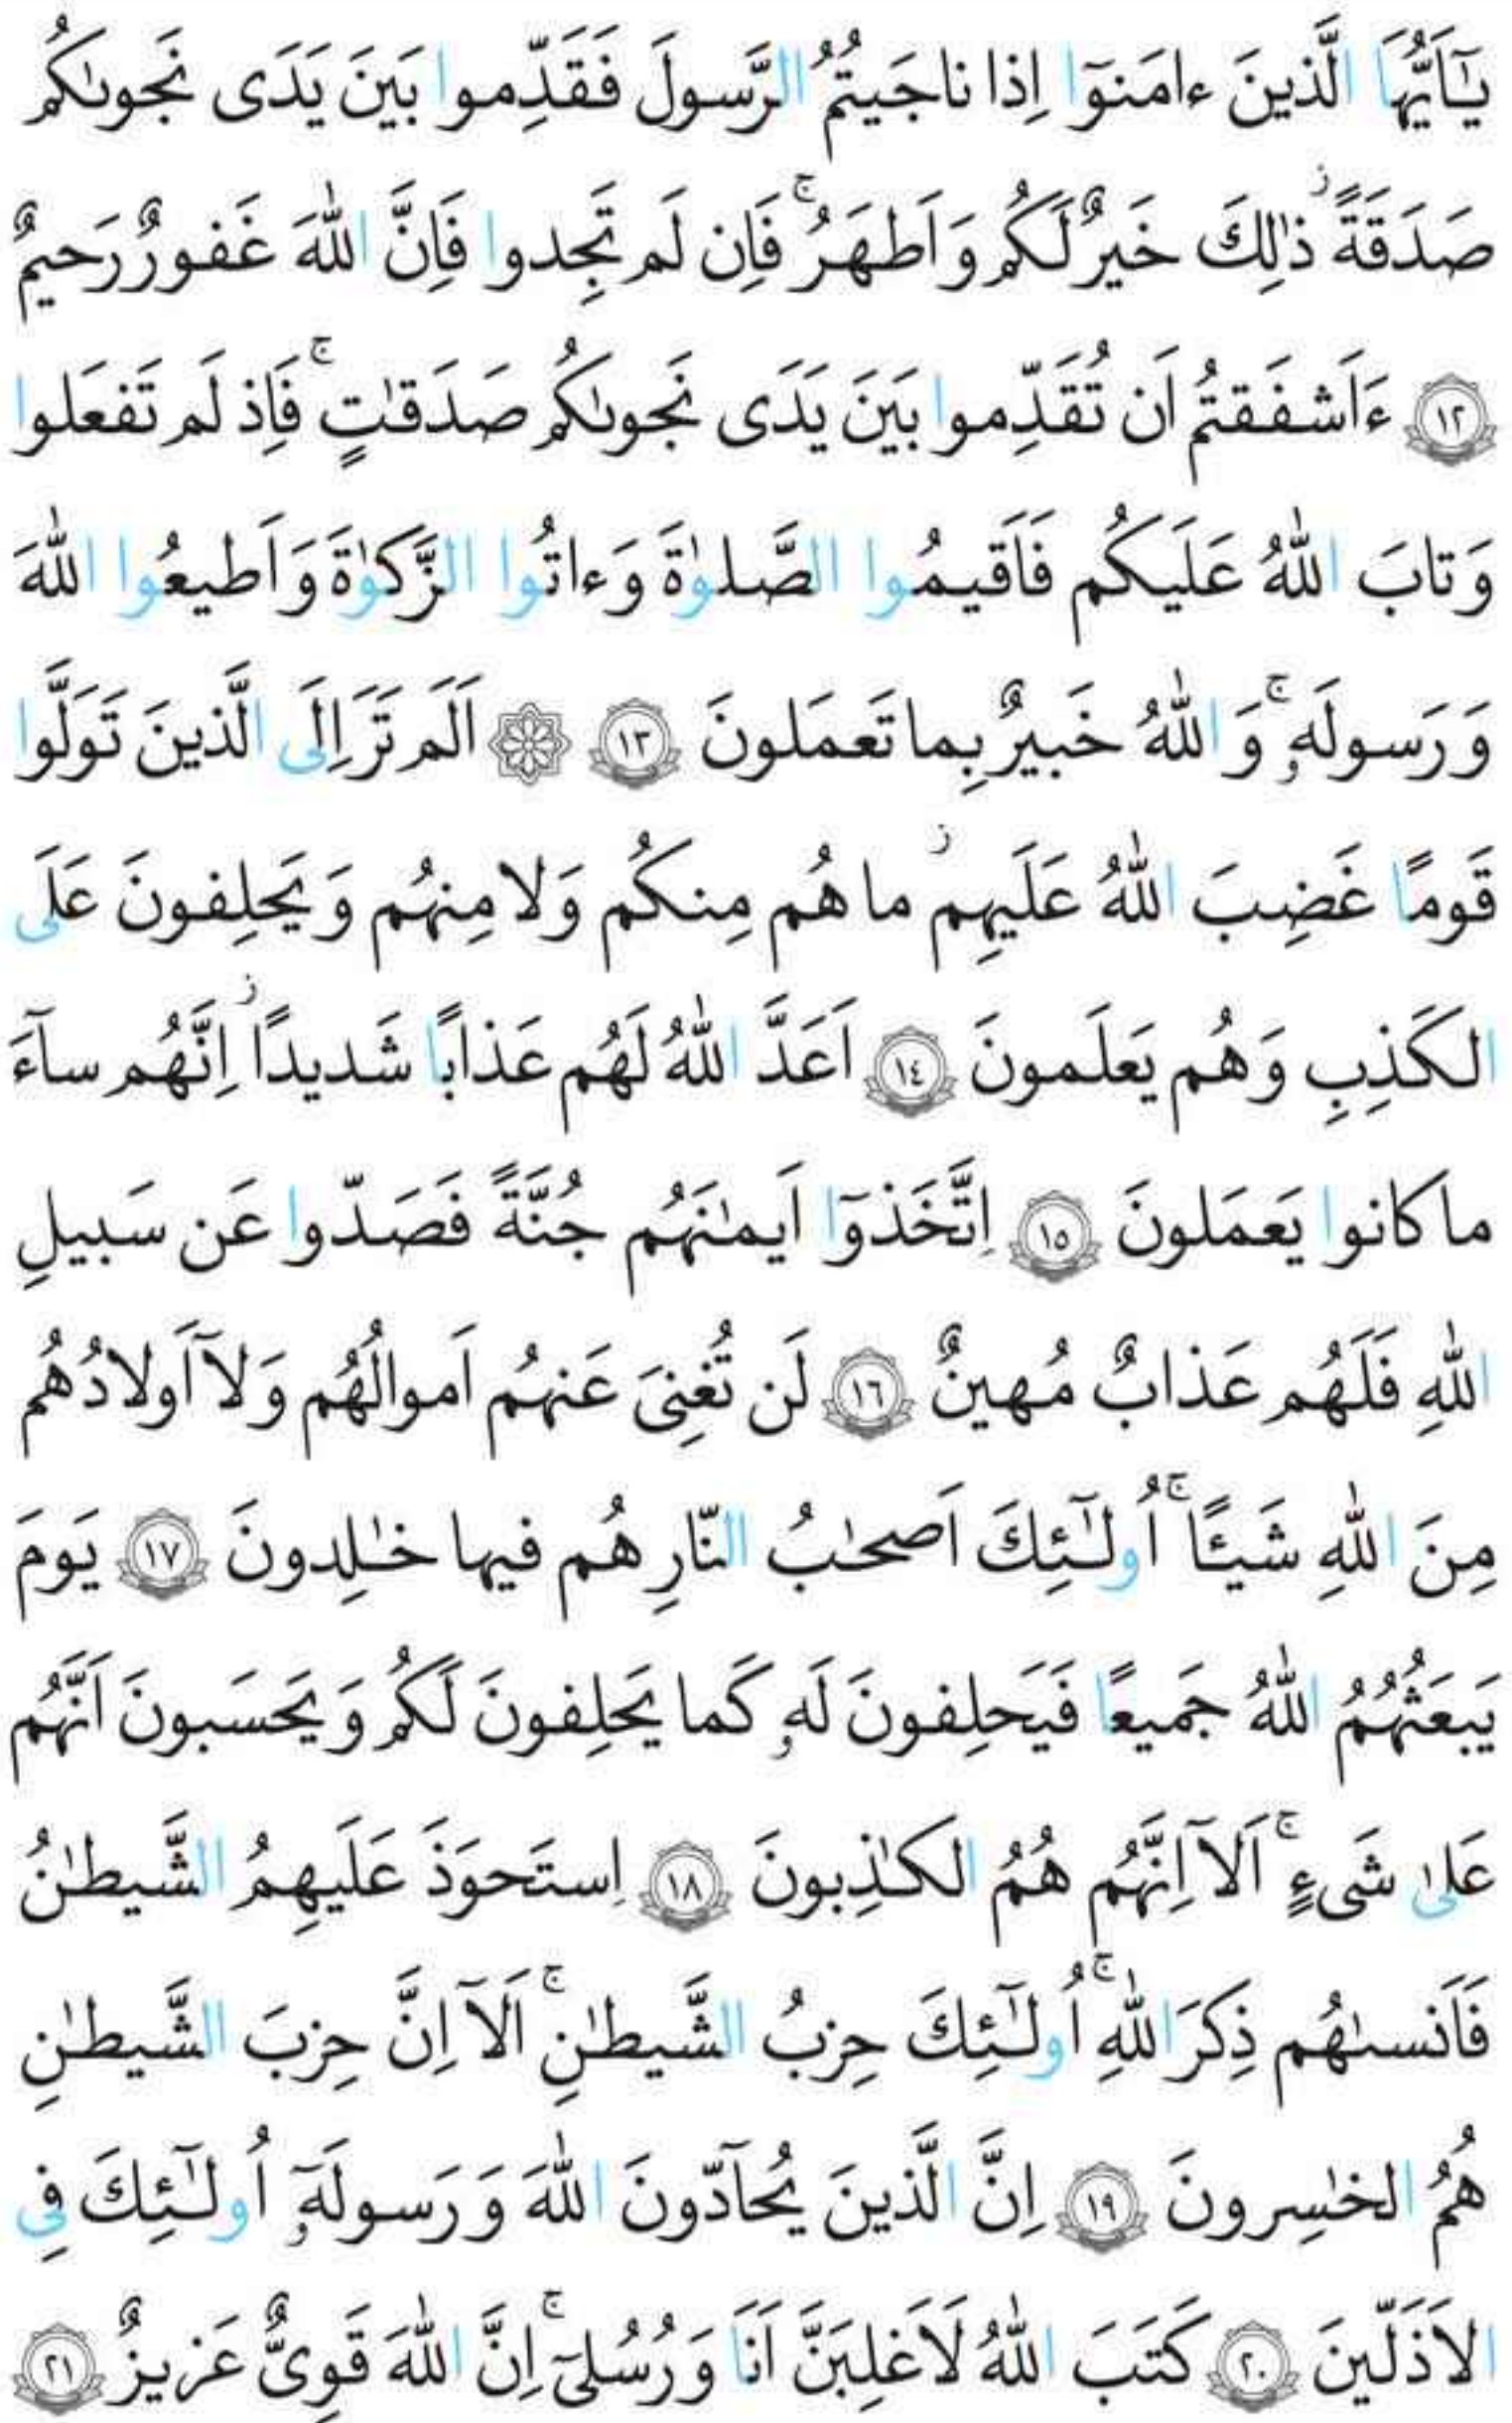 يٰٓاَيُّهَا الَّذينَ ءامَنوٓا اِذا ناجَيتُمُ الرَّسولَ فَقَدِّموا بَينَ يَدَى نَجوىٰكُم
صَدَقَةً ۚ ذٰلِكَ خَيرٌ لَكُم وَ اَطهَرُ ۚ فَاِن لَم تَجِدوا فَاِنَّ اللّٰهَ غَفورٌ رَحيمٌ
﴿١٢﴾ ءَاَشفَقتُم اَن تُقَدِّموا بَينَ يَدَى نَجوىٰكُم صَدَقٰتٍ ۚ فَاِذ لَم تَفعَلوا
وَ تابَ اللّٰهُ عَلَيكُم فَاَقيمُوا الصَّلوٰةَ وَ ءاتُوا الزَّكوٰةَ وَ اَطيعُوا اللّٰهَ
وَ رَسولَهٗ ۚ وَ اللّٰهُ خَبيرٌ بِما تَعمَلونَ ﴿١٣﴾ ۞ اَلَم تَرَ اِلَى الَّذينَ تَوَلَّوا
قَومًا غَضِبَ اللّٰهُ عَلَيهِم ما هُم مِنكُم وَلا مِنهُم وَ يَحلِفونَ عَلَى
الكَذِبِ وَ هُم يَعلَمونَ ﴿١٤﴾ اَعَدَّ اللّٰهُ لَهُم عَذابًا شَديدًا اِنَّهُم سآءَ
ما كانوا يَعمَلونَ ﴿١٥﴾ اِتَّخَذوٓا اَيمٰنَهُم جُنَّةً فَصَدّوا عَن سَبيلِ
اللّٰهِ فَلَهُم عَذابٌ مُهينٌ ﴿١٦﴾ لَن تُغنِىَ عَنهُم اَموالُهُم وَلآ اَولادُهُم
مِنَ اللّٰهِ شَيـًٔا ۚ اُولٰٓئِكَ اَصحٰبُ النّارِ هُم فيها خٰلِدونَ ﴿١٧﴾ يَومَ
يَبعَثُهُمُ اللّٰهُ جَميعًا فَيَحلِفونَ لَهٗ كَما يَحلِفونَ لَكُم وَ يَحسَبونَ اَنَّهُم
عَلىٰ شَىءٍ ۚ اَلآ اِنَّهُم هُمُ الكٰذِبونَ ﴿١٨﴾ اِستَحوَذَ عَلَيهِمُ الشَّيطٰنُ
فَاَنسىٰهُم ذِكرَ اللّٰهِ ۚ اُولٰٓئِكَ حِزبُ الشَّيطٰنِ ۚ اَلآ اِنَّ حِزبَ الشَّيطٰنِ
هُمُ الخٰسِرونَ ﴿١٩﴾ اِنَّ الَّذينَ يُحآدّونَ اللّٰهَ وَ رَسولَهٗٓ اُولٰٓئِكَ فِى
الاَذَلّينَ ﴿٢٠﴾ كَتَبَ اللّٰهُ لَاَغلِبَنَّ اَنَا وَ رُسُلىٓ ۚ اِنَّ اللّٰهَ قَوِىٌّ عَزيزٌ ﴿٢١﴾